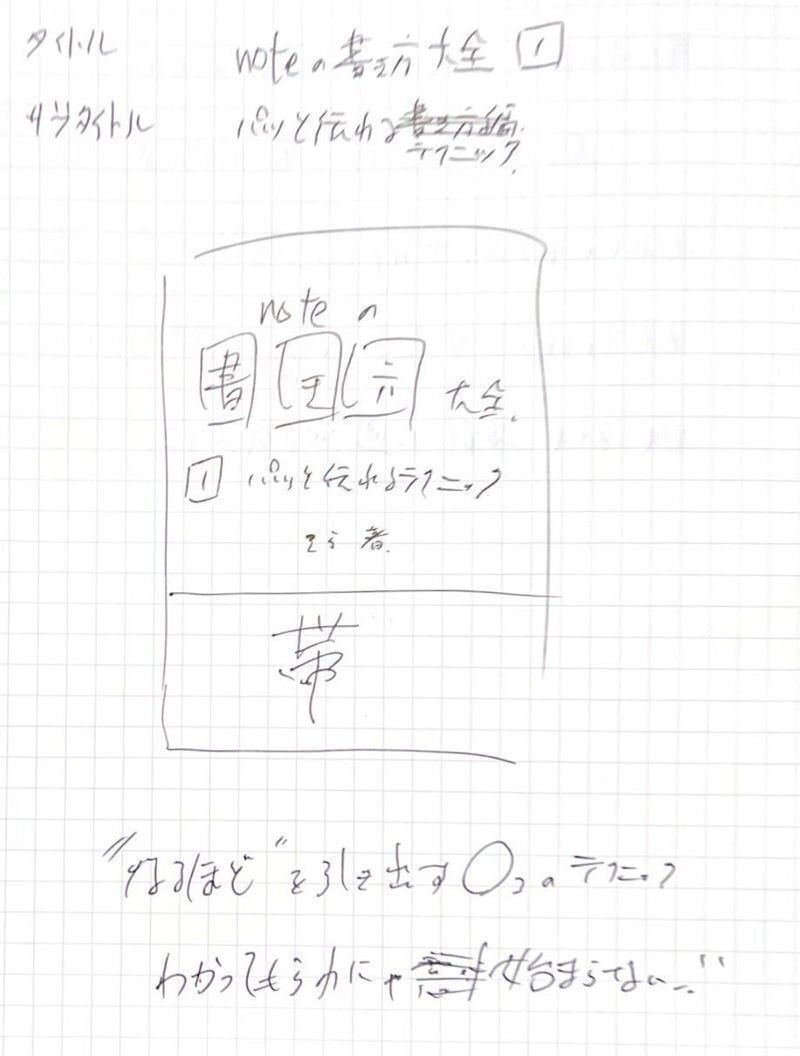 タイトル noteの書き方大全 1
サブタイトル パッと伝わる
テクニック
noteの
書き方 大全
1 パッと伝わるテクニック
著
帯
"なるほど"を引き出す○つのテクニック
わかってもらわにゃ 始まらない